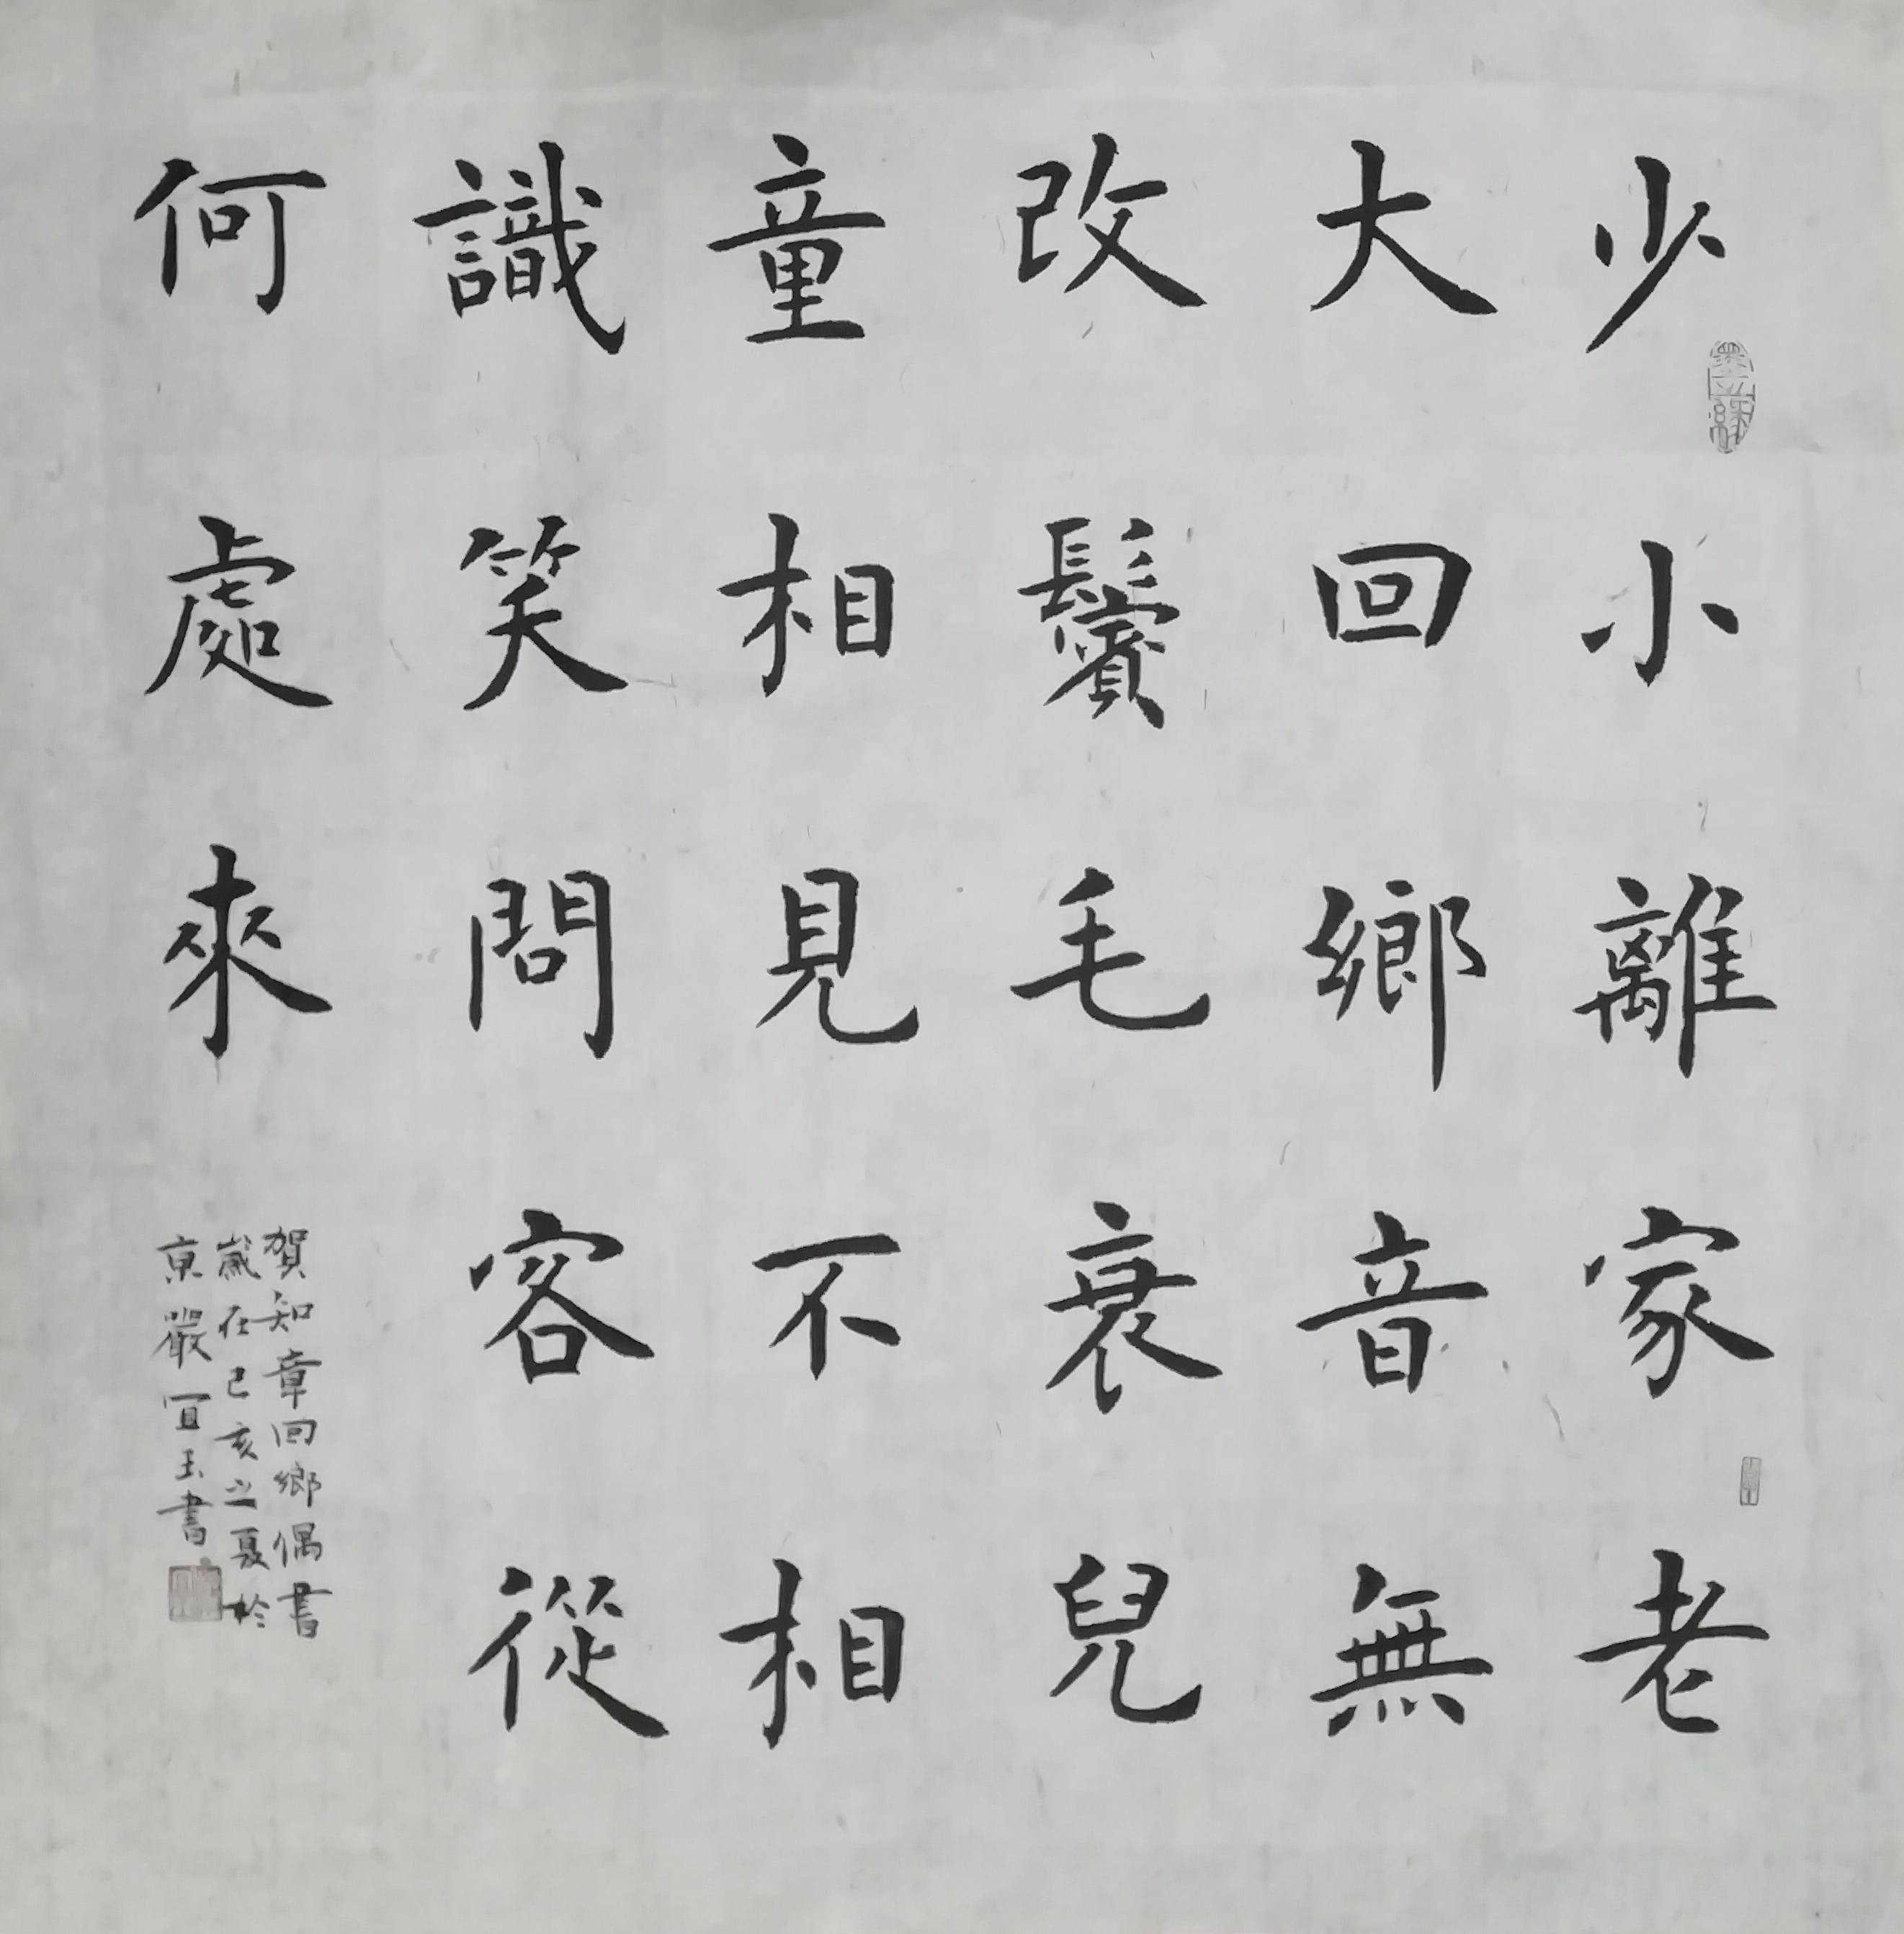 少小離家老
大回鄉音無
改鬢毛衰兒
童相見不相
識笑問客從
何處來
賀知章回鄉偶書
歲在己亥之夏於
京嚴宜玉書